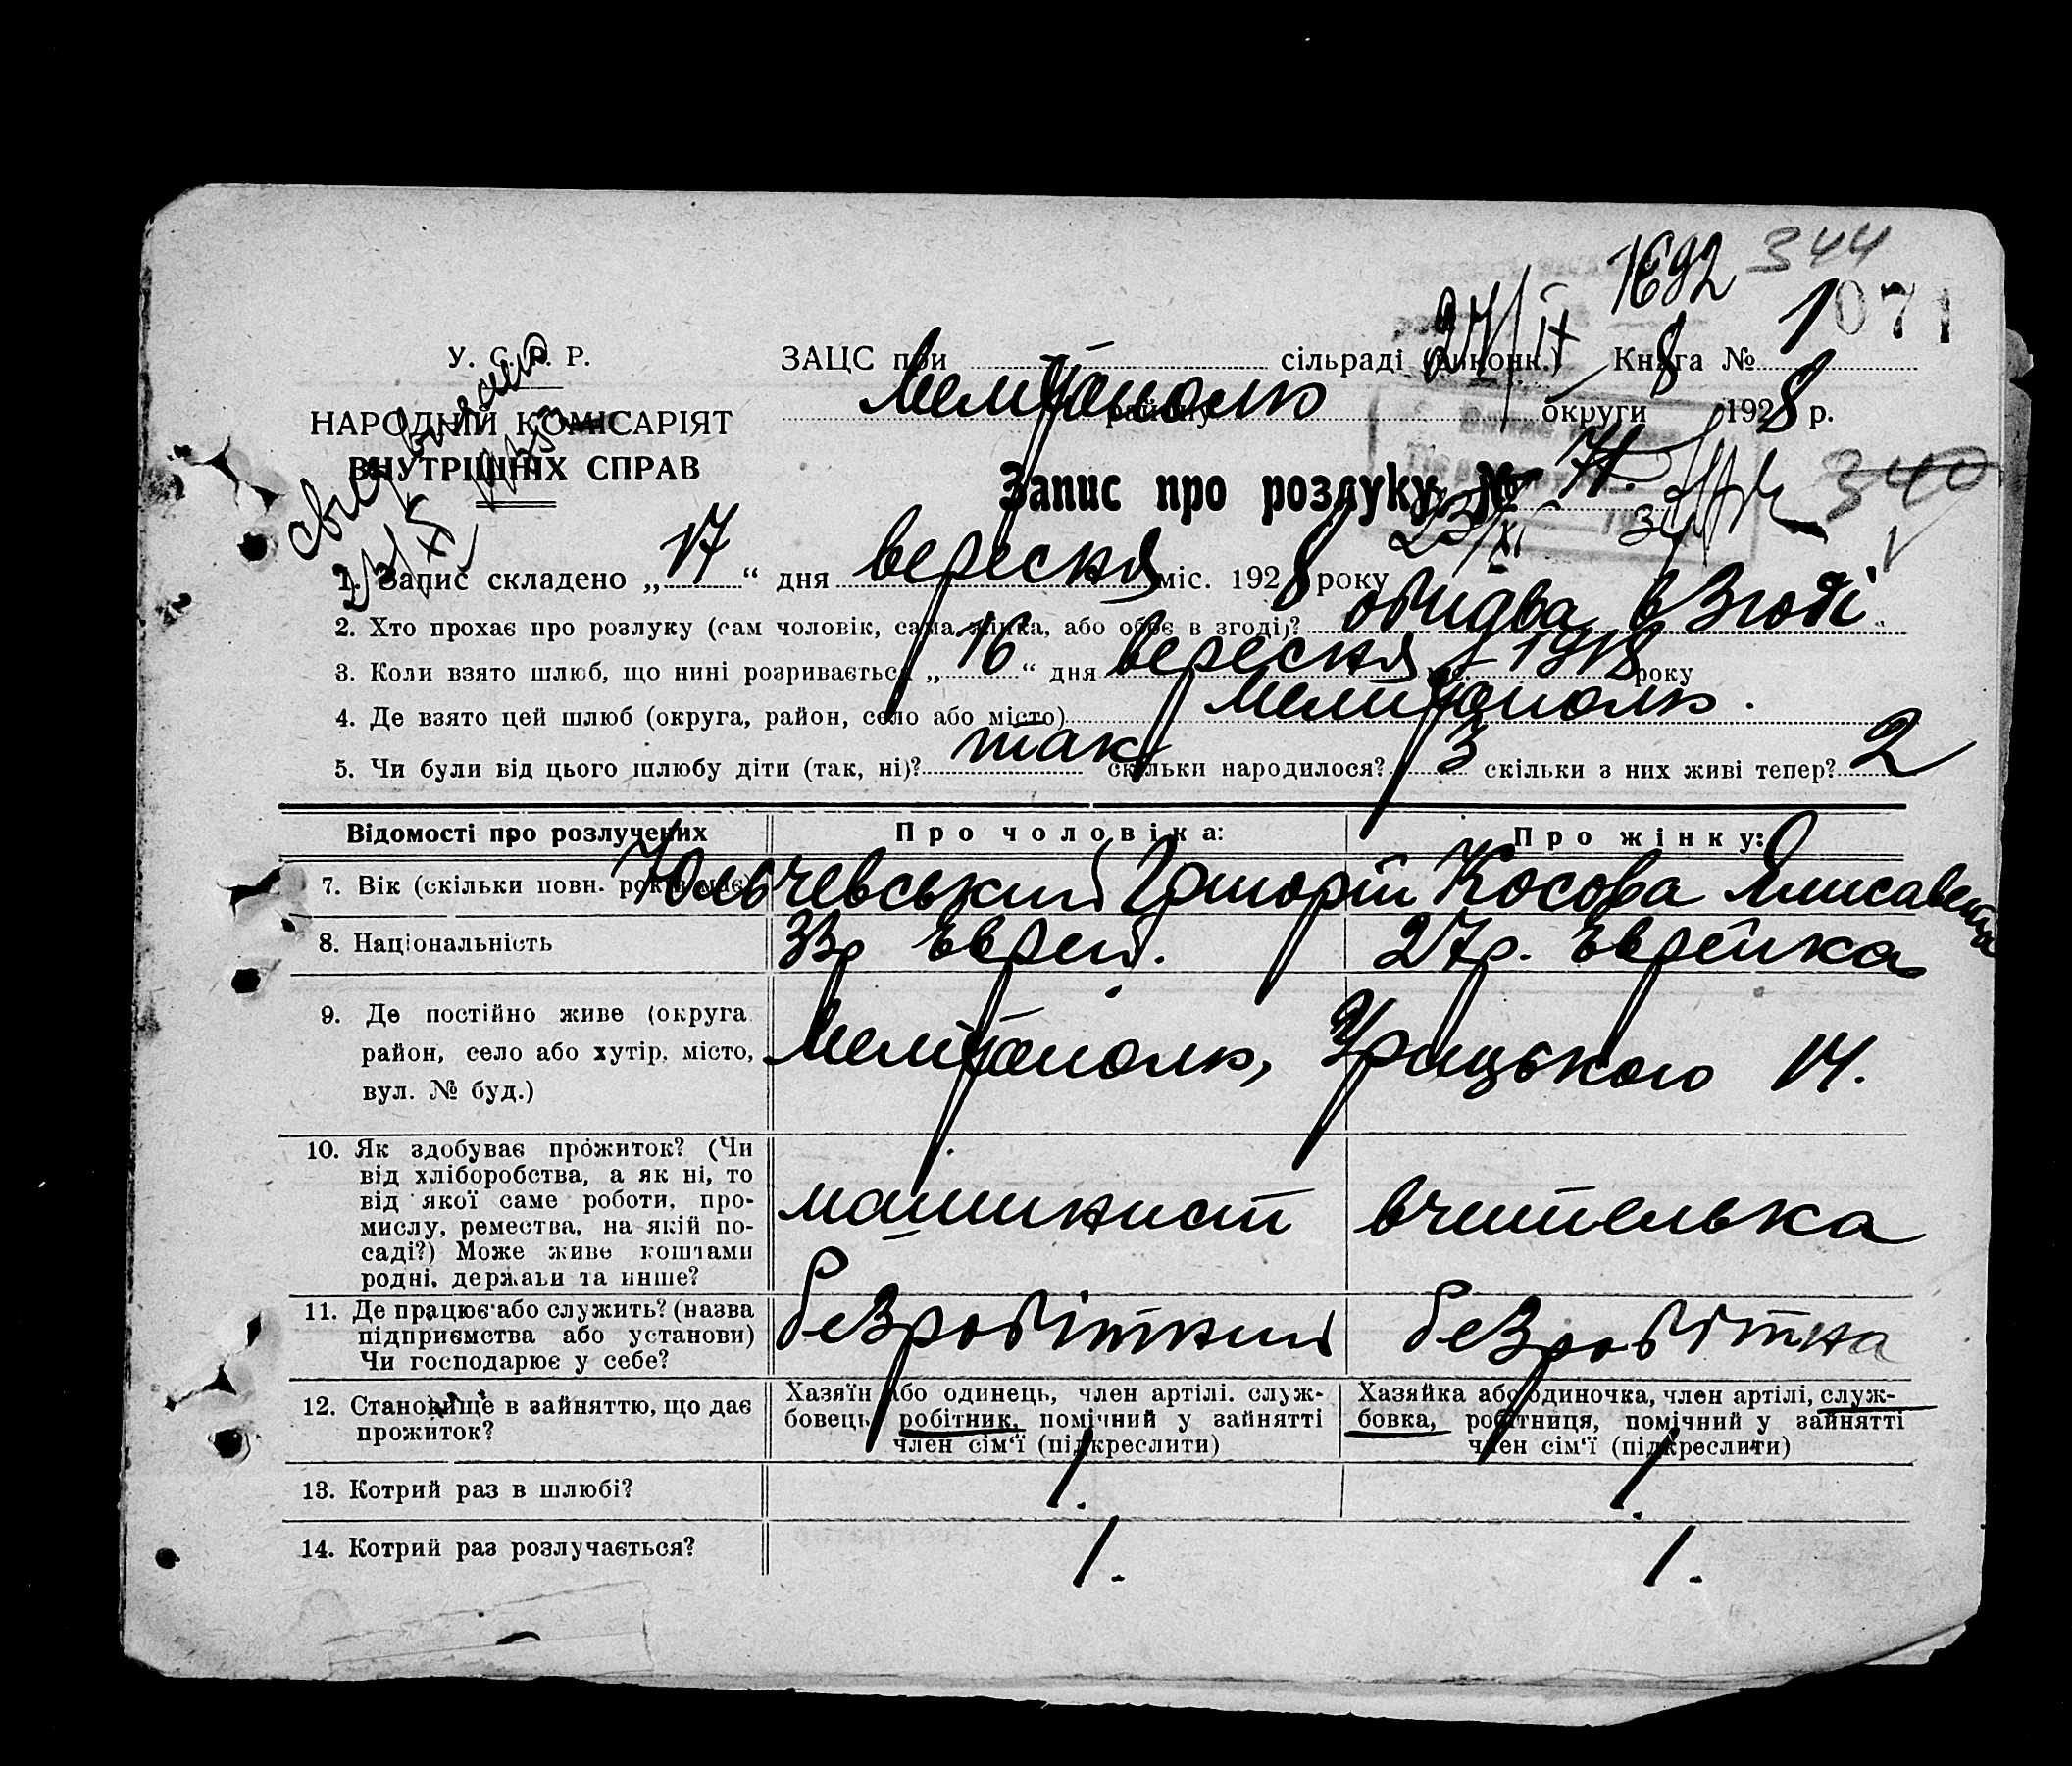 1692 344
1071
27/IX 8
У. С. Р. Р.
ЗАЦС при сільраді (виконк.) Книга №
Мелітополь
району округи 1928 р.
НАРОДНІЙ КОМІСАРІЯТ
ВНУТРІШНІХ СПРАВ
Запис про розлуку № 71.
340
23/XI
1. Запис складено „17“ дня вересня міс. 1928 року
2. Хто прохає про розлуку (сам чоловік, сама жінка, або обоє в згоді)? обидва в згоді
3. Коли взято шлюб, що нині розривається „16“ дня вересня міс. 1918 року
4. Де взято цей шлюб (округа, район, село або місто) Мелітополь.
5. Чи були від цього шлюбу діти (так, ні)? так скільки народилося? 3 скільки з них живі тепер? 2
Відомості про розлучених Про чоловіка: Про жінку:
Юльчевський Григорій Косова Єлисавета
7. Вік (скільки повн. років має)
8. Національність 33р Еврей. 27р. Еврейка
9. Де постійно живе (округа
район, село або хутір, місто, Мелітополь, Урицького 14.
вул. № буд.)
10. Як здобуває прожиток? (Чи
від хліборобства, а як ні, то
від якої саме роботи, про-
мислу, ремества, на якій по- машинист вчителька
саді?) Може живе коштами
родні, держави та инше?
11. Де працює або служить? (назва
підприємства або установи) безробітний безробітна
Чи господарює у себе?
12. Становище в зайняттю, що дає
прожиток?
Хазяїн або одинець, член артілі. служ-
бовець робітник, помічний у зайнятті
член сім'ї (підкреслити)
Хазяйка або одиночка, член артілі, служ-
бовка, робітниця, помічний у зайнятті
член сім'ї (підкреслити)
13. Котрий раз в шлюбі? 1. 1.
14. Котрий раз розлучається? 1. 1.